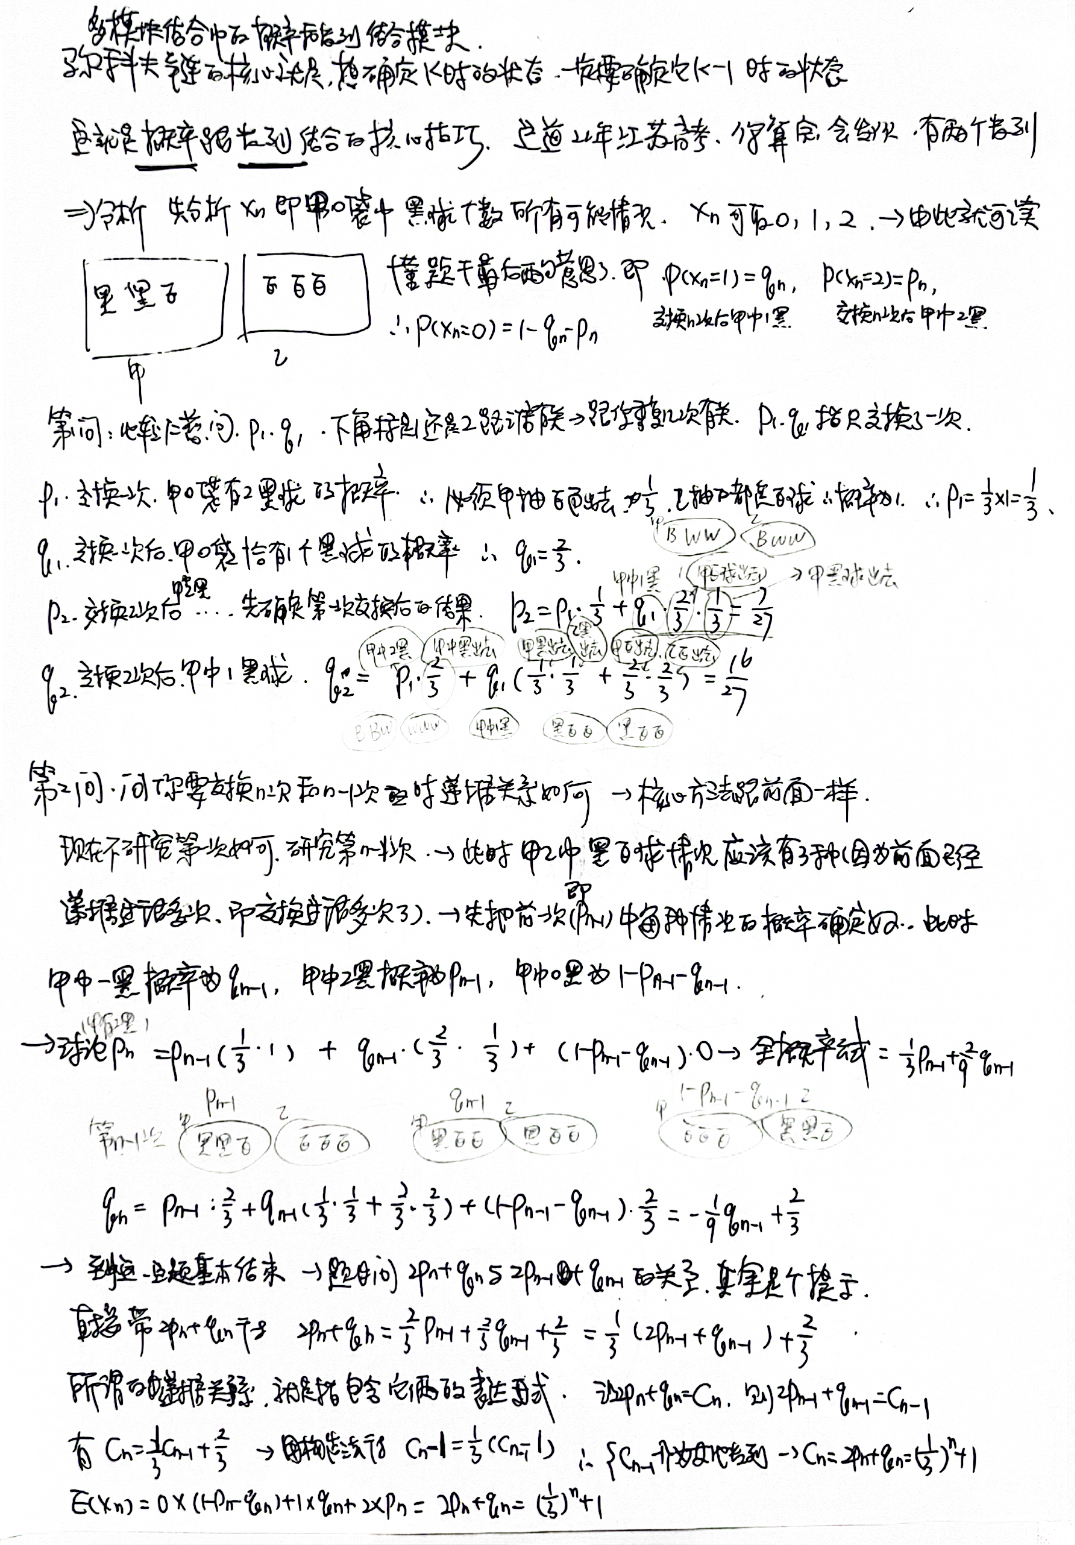 多模块结合中的概率与数列结合模块.
马尔科夫链的核心就是,想确定K时的状态.一定要确定它K-1时的状态
这就是概率跟数列结合的核心技巧. 这道20年江苏高考.你算完会发现.有两个数列
⇒分析 先分析 Xn 即甲口袋中 黑球个数所有可能情况. Xn可取0, 1, 2. →由此就可读
懂题干最后两句意思了.即 P(Xn=1)=qn, P(Xn=2)=pn,
黑 黑 白 白 白 白
∴P(Xn=0)=1-qn-pn 交换n次后甲中1黑 交换n次后甲中2黑
甲 乙
第1问: p1. q1. 下角标是1还是2跟谁有关→跟你交换几次有关. p1. q1指只交换了一次.
p1. 交换一次. 甲口袋有2黑球的概率. ∴必须甲抽白色出去.为1/3.乙抽的都是白球∴概率为1. ∴p1=1/3×1=1/3.
q1. 交换一次后.甲口袋恰有1个黑球的概率 ∴ q1=2/3.
甲 BWW 乙 BWW
甲中1黑 甲白球出去 →甲黑球出去
p2. 交换2次后甲2黑.... 先确定第一次交换后的结果. p2=p1·1/3+q1·2/3·1/3=7/27
甲中2黑 甲中黑出去 甲黑出去 乙黑出去 甲白出去.乙白出去
q2. 交换2次后.甲中1黑球. q2=p1·2/3+q1(1/3·1/3+2/3·2/3)=16/27
BBW WWW 甲中1黑 黑白白 黑白白
第2问.问你要交换n次和n-1次时递推关系如何 →核心方法跟前面一样.
现在不研究第一次如何.研究第n-1次.→此时甲乙中黑白球情况应该有3种(因为前面已经
递推过很多次.即交换过很多次了).→先把前一次(即Pn-1)中每种情况的概率确定好.. 此时
甲中一黑概率为qn-1, 甲中2黑概率为pn-1, 甲中0黑为1-pn-1-qn-1.
(甲有2黑)
→讨论pn =pn-1(1/3·1) + qn-1·(2/3·1/3)+ (1-pn-1-qn-1)·0→全概率公式=1/3pn-1+2/9qn-1
pn-1 qn-1 1-pn-1-qn-1
第n-1次 甲 黑黑白 乙 白白白 甲 黑白白 乙 黑白白 甲 白白白 乙 黑黑白
qn=pn-1·2/3+qn-1(1/3·1/3+2/3·2/3)+(1-pn-1-qn-1)·2/3=-1/9qn-1+2/3
→ 到这.这题基本结束 →题目问2pn+qn与2pn-1+qn-1的关系.其实是个提示.
直接带2pn+qn 2pn+qn=2/3pn-1+1/3qn-1+2/3=1/3(2pn-1+qn-1)+2/3.
所谓的递推关系,就是指包含它俩的表达式. 设2pn+qn=Cn, 则2pn-1+qn-1=Cn-1
有Cn=1/3Cn-1+2/3 →用构造法 Cn-1=1/3(Cn-1-1) ∴{Cn-1}为等比数列→Cn=2pn+qn=(1/3)ⁿ+1
E(Xn)=0×(1-pn-qn)+1×qn+2×pn=2pn+qn=(1/3)ⁿ+1